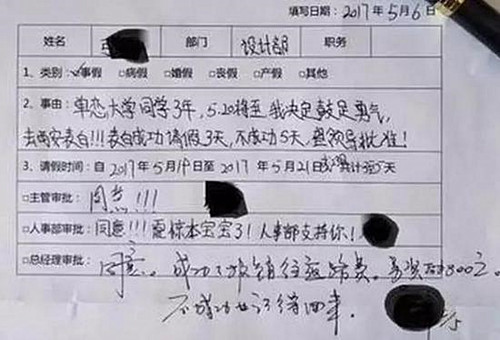 填写日期：2017年5月6日
姓名 部门 设计部 职务
1、类别：☑事假 □病假 □婚假 □丧假 □产假 □其他
2、事由：单恋大学同学3年，5.20将至 我决定鼓足勇气，
去西安表白!!!表白成功请假3天，不成功5天，望领导批准！
3、请假时间：自2017年5月19日至2017年5月21日 共计 5天
□主管审批：同意!!!
□人事部审批：同意!!!震惊本宝宝了！人事部支持你！
□总经理审批：同意。成功了报销往返路费。
不成功